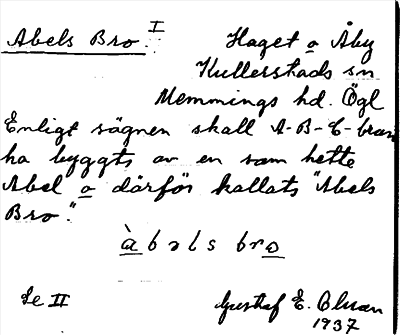 Abels Bro. I
Haget o Åby
Kullerstads sn
Memmings hd. Ögl
Enligt sägnen skall A-B-C-bran
ha byggts av en som hette
Abel o därför kallats "Abels
Bro."
àbəls bro
Se II
Gustaf E. Olsson
1937